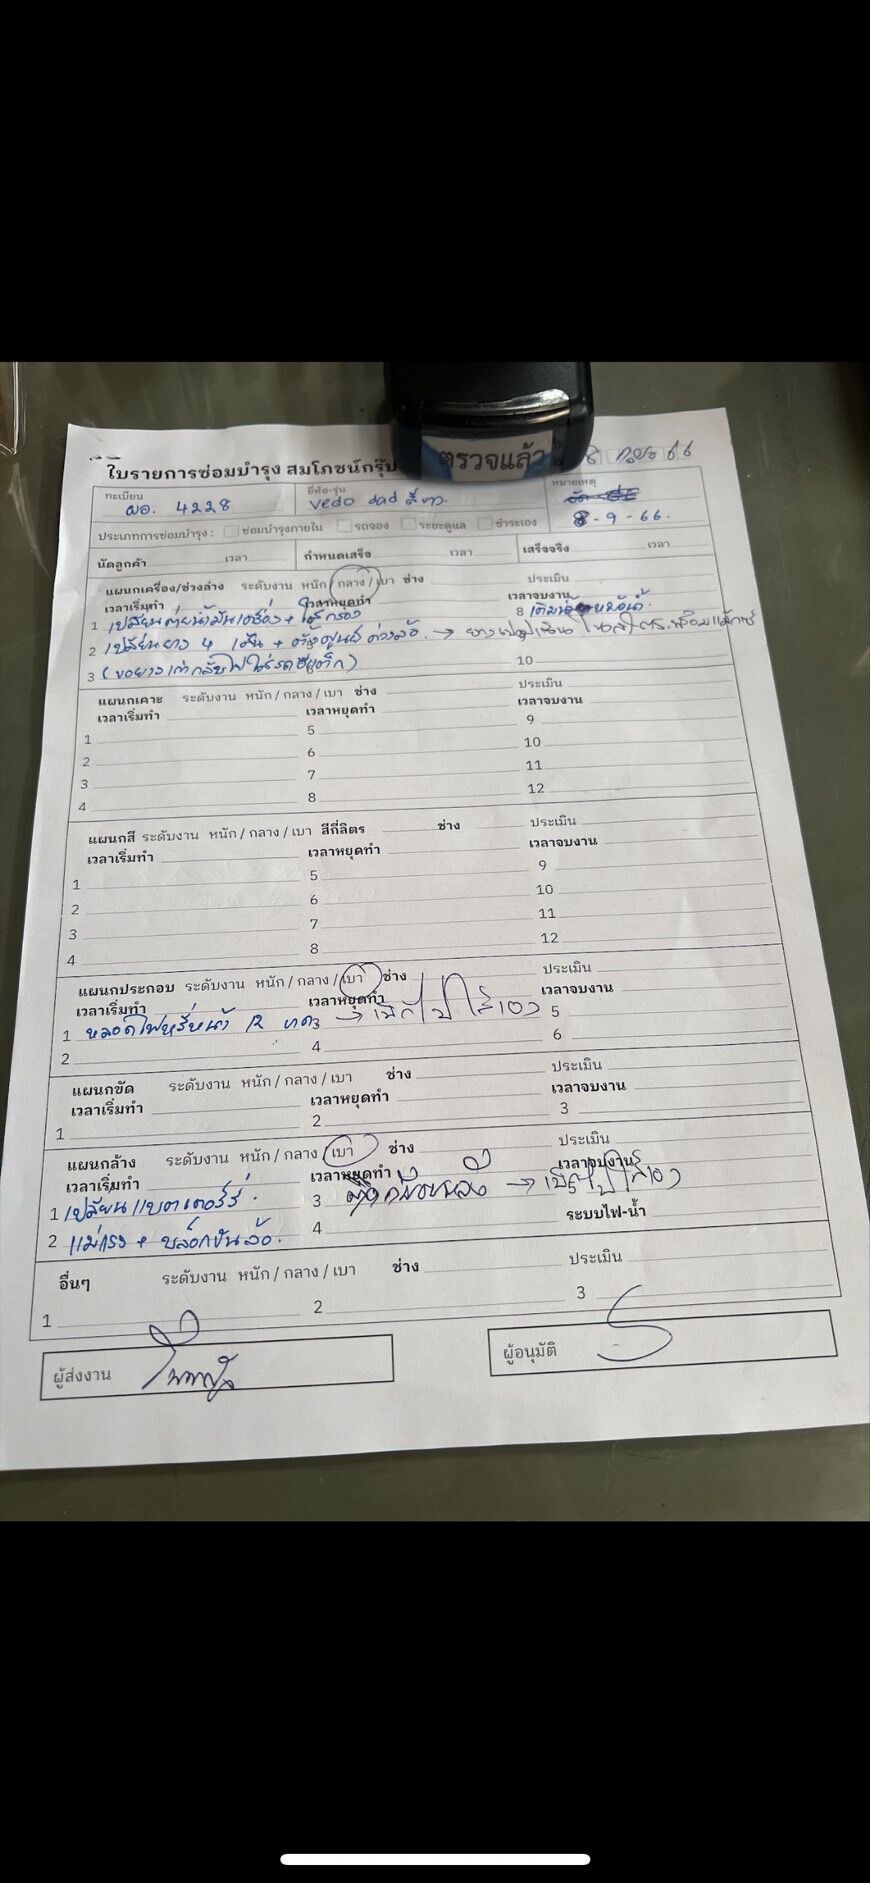 ใบรายการซ่อมบำรุง สมโภชน์กรุ๊ป ตรวจแล้ว 8 กย 66
ทะเบียน ผอ. 4228 ยี่ห้อ-รุ่น vedo dad สีขาว หมายเหตุ
8-9-66.
ประเภทการซ่อมบำรุง : ซ่อมบำรุงภายใน รถจอง ระยะดูแล ชำระเอง
นัดลูกค้า เวลา กำหนดเสร็จ เวลา เสร็จจริง เวลา
แผนกเครื่อง/ช่วงล่าง ระดับงาน หนัก / กลาง / เบา ช่าง ประเมิน
เวลาเริ่มทำ เวลาหยุดทำ เวลาจบงาน
1 เปลี่ยนถ่ายน้ำมันเครื่อง + ไส้กรอง 8
2 เปลี่ยนยาง 4 เส้น + ตั้งศูนย์ ถ่วงล้อ. →
3 (ขอยางเก่ากลับไปใส่รถ 10
แผนกเคาะ ระดับงาน หนัก / กลาง / เบา ช่าง ประเมิน
เวลาเริ่มทำ เวลาหยุดทำ เวลาจบงาน
1 5 9
2 6 10
3 7 11
4 8 12
แผนกสี ระดับงาน หนัก / กลาง / เบา สีกี่ลิตร ช่าง ประเมิน
เวลาเริ่มทำ เวลาหยุดทำ เวลาจบงาน
1 5 9
2 6 10
3 7 11
4 8 12
แผนกประกอบ ระดับงาน หนัก / กลาง / เบา ช่าง ประเมิน
เวลาเริ่มทำ เวลาหยุดทำ เวลาจบงาน
1 หลอดไฟหรี่หน้า → เบิกไปใส่เอง 5
2 4 6
แผนกขัด ระดับงาน หนัก / กลาง / เบา ช่าง ประเมิน
เวลาเริ่มทำ เวลาหยุดทำ เวลาจบงาน
1 2 3
แผนกล้าง ระดับงาน หนัก / กลาง / เบา ช่าง ประเมิน
เวลาเริ่มทำ เวลาหยุดทำ เวลาจบงาน
1 เปลี่ยนแบตเตอร์รี่. 3 กล้องหลัง → เบิกไปใส่เอง
2 แม่แรง + บล็อกขันล้อ. 4 ระบบไฟ-น้ำ
อื่นๆ ระดับงาน หนัก / กลาง / เบา ช่าง ประเมิน
1 2 3
ผู้ส่งงาน ผู้อนุมัติ